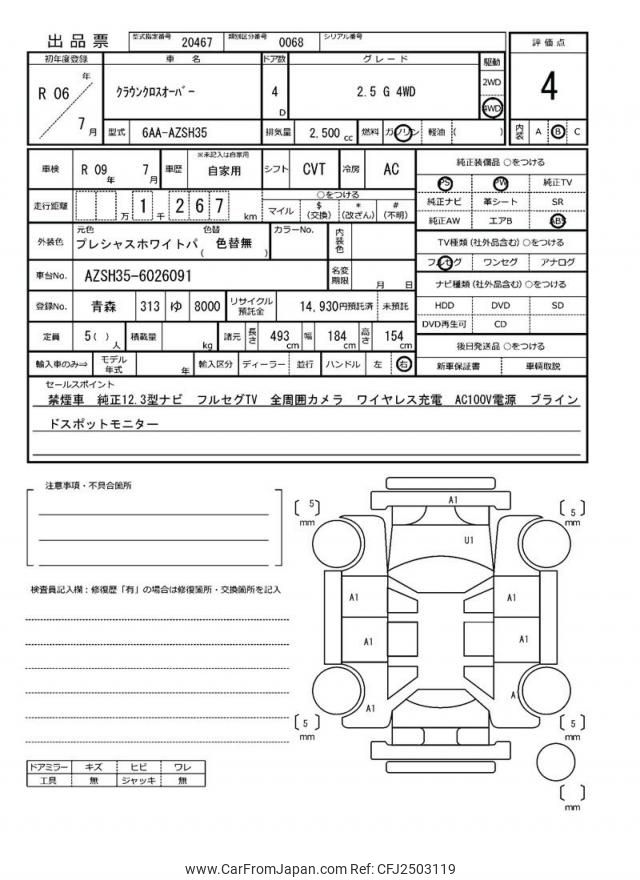 出品票 型式指定番号 20467 類別区分番号 0068 シリアル番号
評価点
4
初年度登録 車名 ドア数 グレード 駆動
R 06 年 7 月 クラウンクロスオーバー 4 D 2.5 G 4WD 2WD 4WD
型式 6AA-AZSH35 排気量 2,500 cc 燃料 ガソリン 軽油 ( )
内装 A B C
車検 R 09 年 7 月 車歴 ※未記入は自家用 自家用 シフト CVT 冷房 AC
走行距離 万 1 千 2 6 7 km ○をつける
マイル $(交換) *(改ざん) #(不明)
外装色 元色 プレシャスホワイトパ 色替 ( 色替無 ) カラーNo. 内装色
車台No. AZSH35-6026091 名変期限 月 日
登録No. 青森 313 ゆ 8000 リサイクル預託金 14,930円預託済 未預託
定員 5 ( ) 人 積載量 kg 諸元 長さ 493 cm 幅 184 cm 高さ 154 cm
輸入車のみ⇒ モデル年式 年 輸入区分 ディーラー 並行 ハンドル 左 右
純正装備品 ○をつける
PS PW 純正TV
純正ナビ 革シート SR
純正AW エアB ABS
TV種類(社外品含む) ○をつける
フルセグ ワンセグ アナログ
ナビ種類(社外品含む) ○をつける
HDD DVD SD
DVD再生可 CD
後日発送品 ○をつける
新車保証書 車輌取説
セールスポイント
禁煙車 純正12.3型ナビ フルセグTV 全周囲カメラ ワイヤレス充電 AC100V電源 ブライン
ドスポットモニター
注意事項・不具合箇所
検査員記入欄:修復歴「有」の場合は修復箇所・交換箇所を記入
ドアミラー キズ ヒビ ワレ
工具 無 ジャッキ 無
5 mm
A1
5 mm
U1
A1
A1
A1
A1
A1
A1
5 mm
5 mm
mm
www.CarFromJapan.com Ref: CFJ2503119